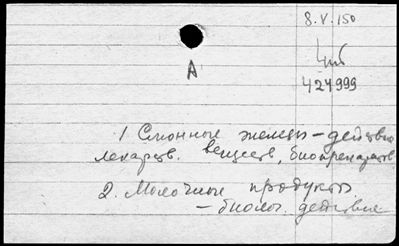 8.V.150
Циб
А
424999
1 Слюнные железы – действие
лекарств. веществ, биопрепаратов
2. Молочные продукты
– биолог. действие